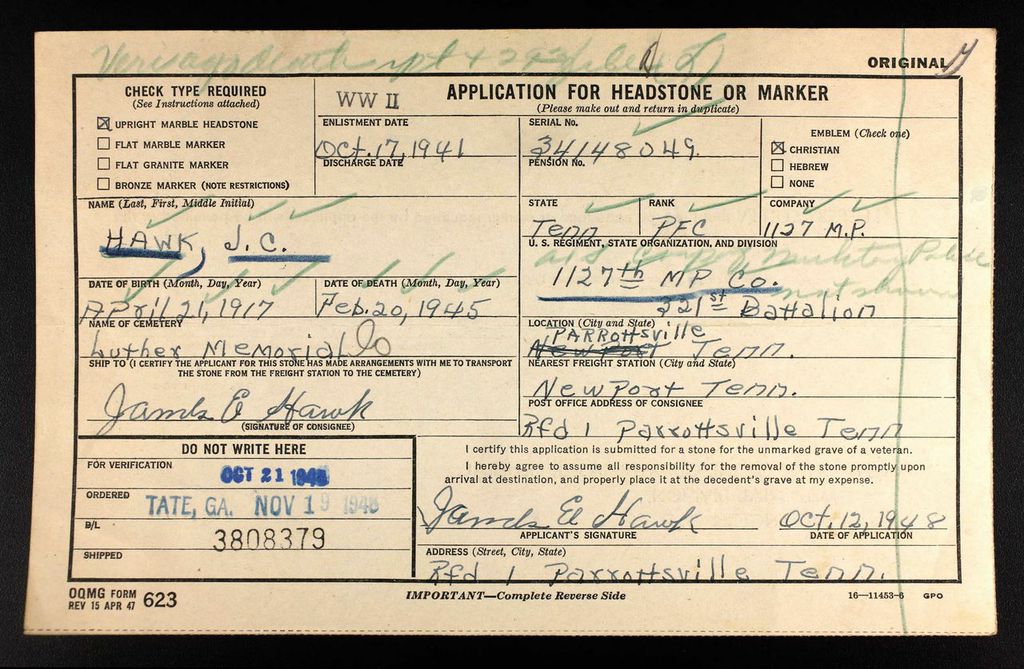 ORIGINAL
CHECK TYPE REQUIRED
(See Instructions attached)
UPRIGHT MARBLE HEADSTONE
FLAT MARBLE MARKER
FLAT GRANITE MARKER
BRONZE MARKER (NOTE RESTRICTIONS)
WW II
APPLICATION FOR HEADSTONE OR MARKER
(Please make out and return in duplicate)
ENLISTMENT DATE
Oct. 17, 1941
DISCHARGE DATE
SERIAL No.
34148049.
PENSION No.
EMBLEM (Check one)
CHRISTIAN
HEBREW
NONE
NAME (Last, First, Middle Initial)
HAWK, J.C.
STATE
Tenn
RANK
PFC
COMPANY
1127 M.P.
U. S. REGIMENT, STATE ORGANIZATION, AND DIVISION
1127th MP Co.
321st Battalion
DATE OF BIRTH (Month, Day, Year)
April 21, 1917
DATE OF DEATH (Month, Day, Year)
Feb. 20, 1945
NAME OF CEMETERY
Luther Memorial
LOCATION (City and State)
PARRottsville
Newport Tenn.
SHIP TO (I CERTIFY THE APPLICANT FOR THIS STONE HAS MADE ARRANGEMENTS WITH ME TO TRANSPORT
THE STONE FROM THE FREIGHT STATION TO THE CEMETERY)
James E Hawk
(SIGNATURE OF CONSIGNEE)
NEAREST FREIGHT STATION (City and State)
NewPort Tenn.
POST OFFICE ADDRESS OF CONSIGNEE
Rfd 1 Parrottsville Tenn
DO NOT WRITE HERE
FOR VERIFICATION
OCT 21 1948
ORDERED
TATE, GA. NOV 19 1948
B/L
3808379
SHIPPED
I certify this application is submitted for a stone for the unmarked grave of a veteran.
I hereby agree to assume all responsibility for the removal of the stone promptly upon
arrival at destination, and properly place it at the decedent's grave at my expense.
James E Hawk
APPLICANT'S SIGNATURE
Oct. 12, 1948
DATE OF APPLICATION
ADDRESS (Street, City, State)
Rfd 1 Parrottsville Tenn.
OQMG FORM
REV 15 APR 47 623
IMPORTANT—Complete Reverse Side
16—11453-6 GPO